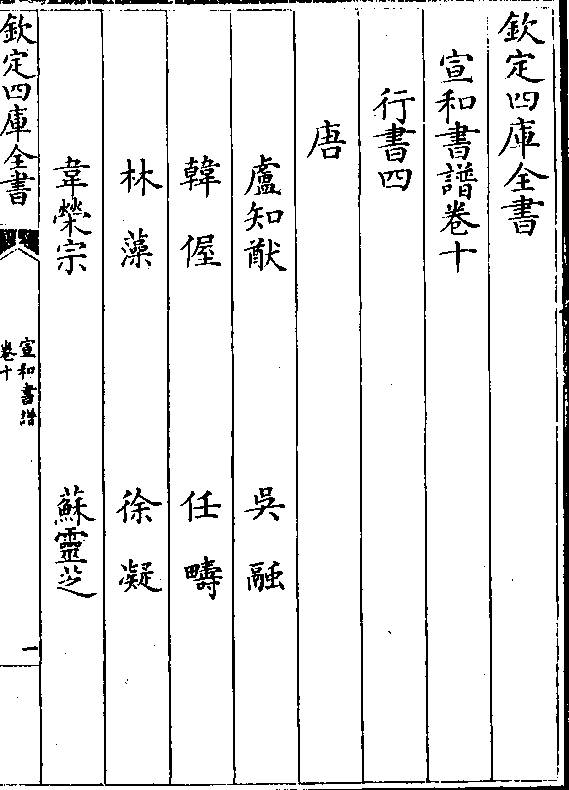 欽定四庫全書
宣和書譜卷十
行書四
唐
盧知猷 吳融
韓偓 任疇
林藻 徐凝
韋榮宗 蘇靈芝
欽定四庫全書
宣和書譜
卷十
一